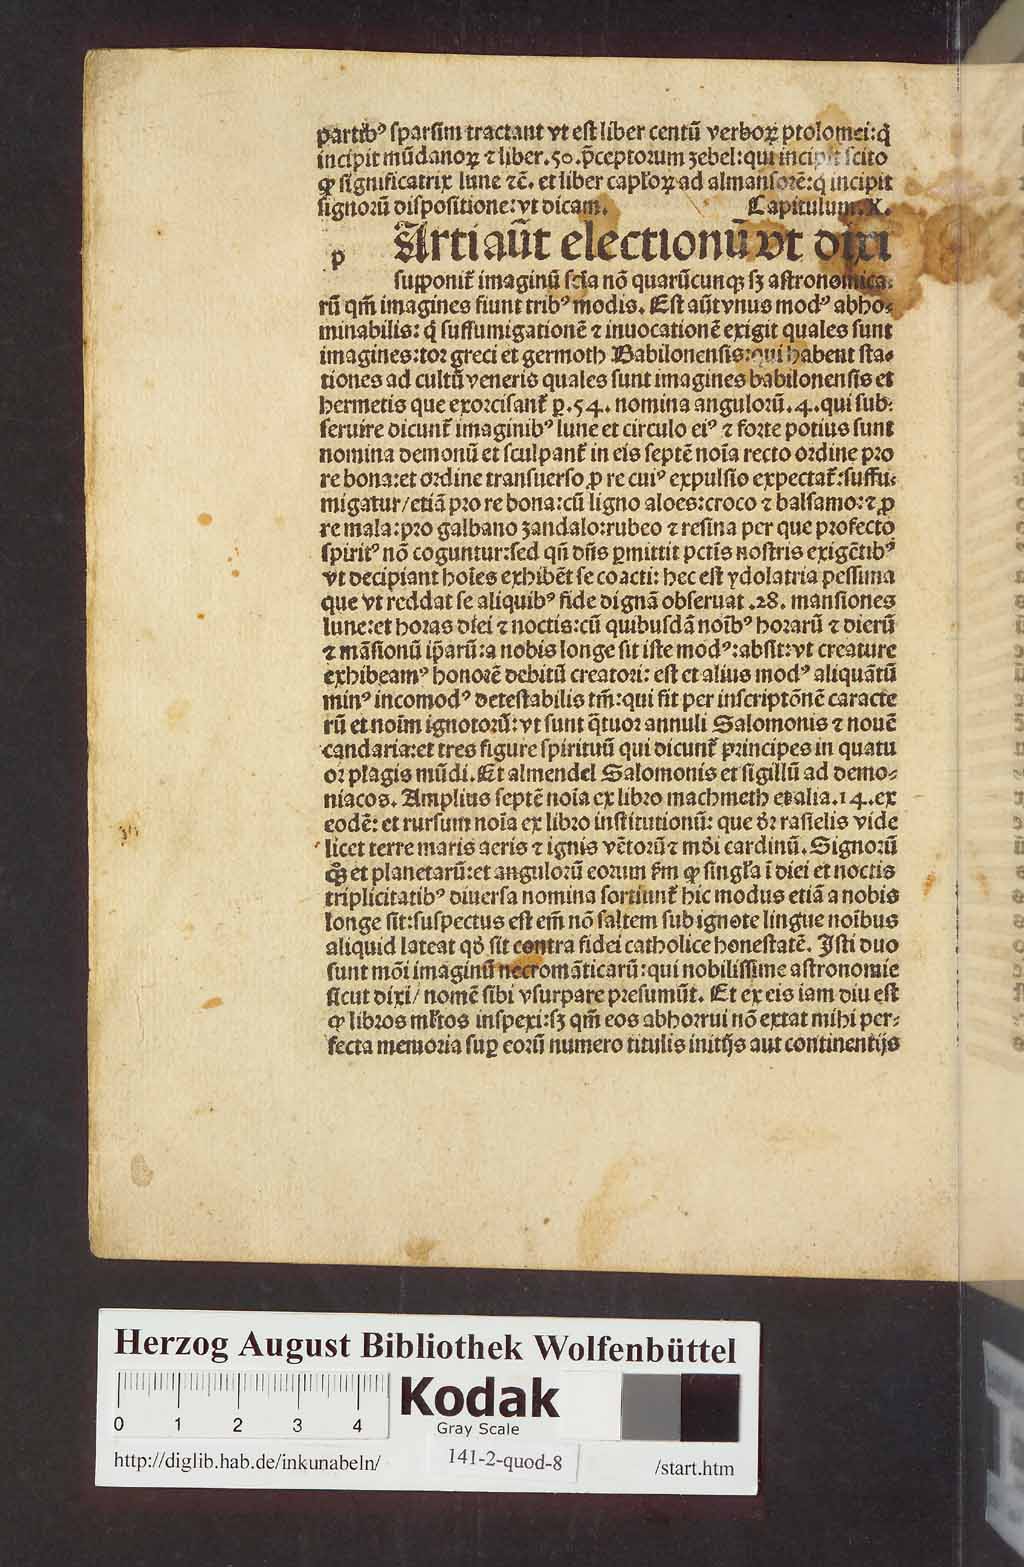 partibꝰ sparsim tractant vt est liber centū verboꝝ ptolomei: q̇
incipit mūdanoꝝ ⁊ liber .50. p̄ceptorum zebel: qui incipit scito
ꝙ significatrix lune ⁊c̄. et liber capl'oꝝ ad almansorē: q̇ incipit
signorū dispositione: vt dicam. Capitulum .X.
p Arti aūt electionū vt dixi
supponit᷑ imaginū scīa nō quarūcunqꝫ sꝫ astronomica⸗
rū qm̄ imagines fiunt tribꝰ modis. Est aūt vnus modꝰ abho⸗
minabilis: q̇ suffumigationē ⁊ inuocationē exigit quales sunt
imagines: toz greci et germoth Babilonensis: qui habent sta⸗
tiones ad cultū veneris quales sunt imagines babilonensis et
hermetis que exorcisant᷑ ꝑ .54. nomina angulorū .4. qui sub⸗
seruire dicunt᷑ imaginibꝰ lune et circulo eiꝰ ⁊ forte potius sunt
nomina demonū et sculpant᷑ in eis septē noīa recto ordine pro
re bona: et ordine transuerso ꝓ re cuiꝰ expulsio expectat᷑: suffu⸗
migatur / etiā pro re bona: cū ligno aloes: croco ⁊ balsamo: ⁊ ꝓ
re mala: pro galbano zandalo: rubeo ⁊ resina per que profecto
spiritꝰ nō coguntur: sed qn̄ dn̄s ꝑmittit pctīs nostris exigētibꝰ
vt decipiant hoīes exhibēt se coacti: hec est ydolatria pessima
que vt reddat se aliquibꝰ fide dignā obseruat .28. mansiones
lune: et horas diei ⁊ noctis: cū quibusdā noībꝰ horarū ⁊ dierū
⁊ māsionū ip̄arū: a nobis longe sit iste modꝰ: absit: vt creature
exhibeamꝰ honorē debitū creatori: est et alius modꝰ aliquātū
minꝰ incomodꝰ detestabilis tm̄: qui fit per inscriptōnē caracte
rū et noīm ignotorū: vt sunt q̄tuor annuli Salomonis ⁊ nouē
candaria: et tres figure spirituū qui dicunt᷑ principes in quatu
or plagis mūdi. Et almendel Salomonis et sigillū ad demo⸗
niacos. Amplius septē noīa ex libro machmeth et alia .14. ex
eodē: et rursum noīa ex libro institutionū: que dr̄ rasielis vide
licet terre maris aeris ⁊ ignis vētorū ⁊ mōi cardinū. Signorū
qꝫ et planetarū: et angulorū eorum scd̄m ꝙ singl'a ī diei et noctis
triplicitatibꝰ diuersa nomina sortiunt᷑ hic modus etiā a nobis
longe sit: suspectus est em̄ nō saltem sub ignote lingue noībus
aliquid lateat qd̄ sit contra fidei catholice honestatē. Isti duo
sunt mōi imaginū necromāticarū: qui nobilissime astronomie
sicut dixi / nomē sibi vsurpare presumūt. Et ex eis iam diu est
ꝙ libros ml'tos inspexi: sꝫ qm̄ eos abhorrui nō extat mihi per⸗
fecta memoria suꝑ eorū numero titulis initijs aut continentijs
Herzog August Bibliothek Wolfenbüttel
0 1 2 3 4
Kodak
Gray Scale
http://diglib.hab.de/inkunabeln/ 141-2-quod-8 /start.htm